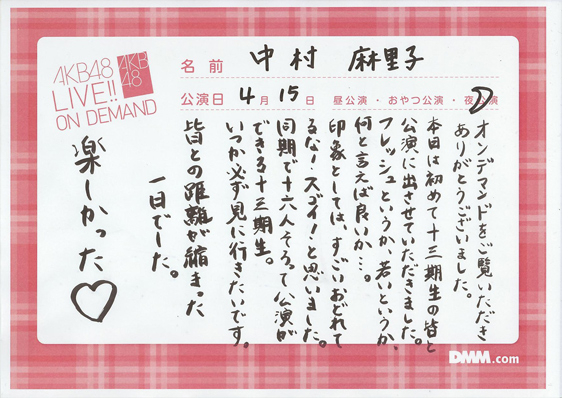 AKB48
LIVE!!
ON DEMAND
AKB
48
名前 中村 麻里子
公演日 4月 15日 昼公演・おやつ公演・夜公演
オンデマンドをご覧いただき
ありがとうございました。
本日は初めて十三期生の皆と
公演に出させていただきました。
フレッシュというか、若いというか、
何と言えば良いか…。
印象としては、すごいおどれて
るな!スゴイ!と思いました。
同期で十六人そろって公演が
できる十三期生。
いつか必ず見に行きたいです。
皆との距離が縮まった
一日でした。
楽しかった♡
DMM.com